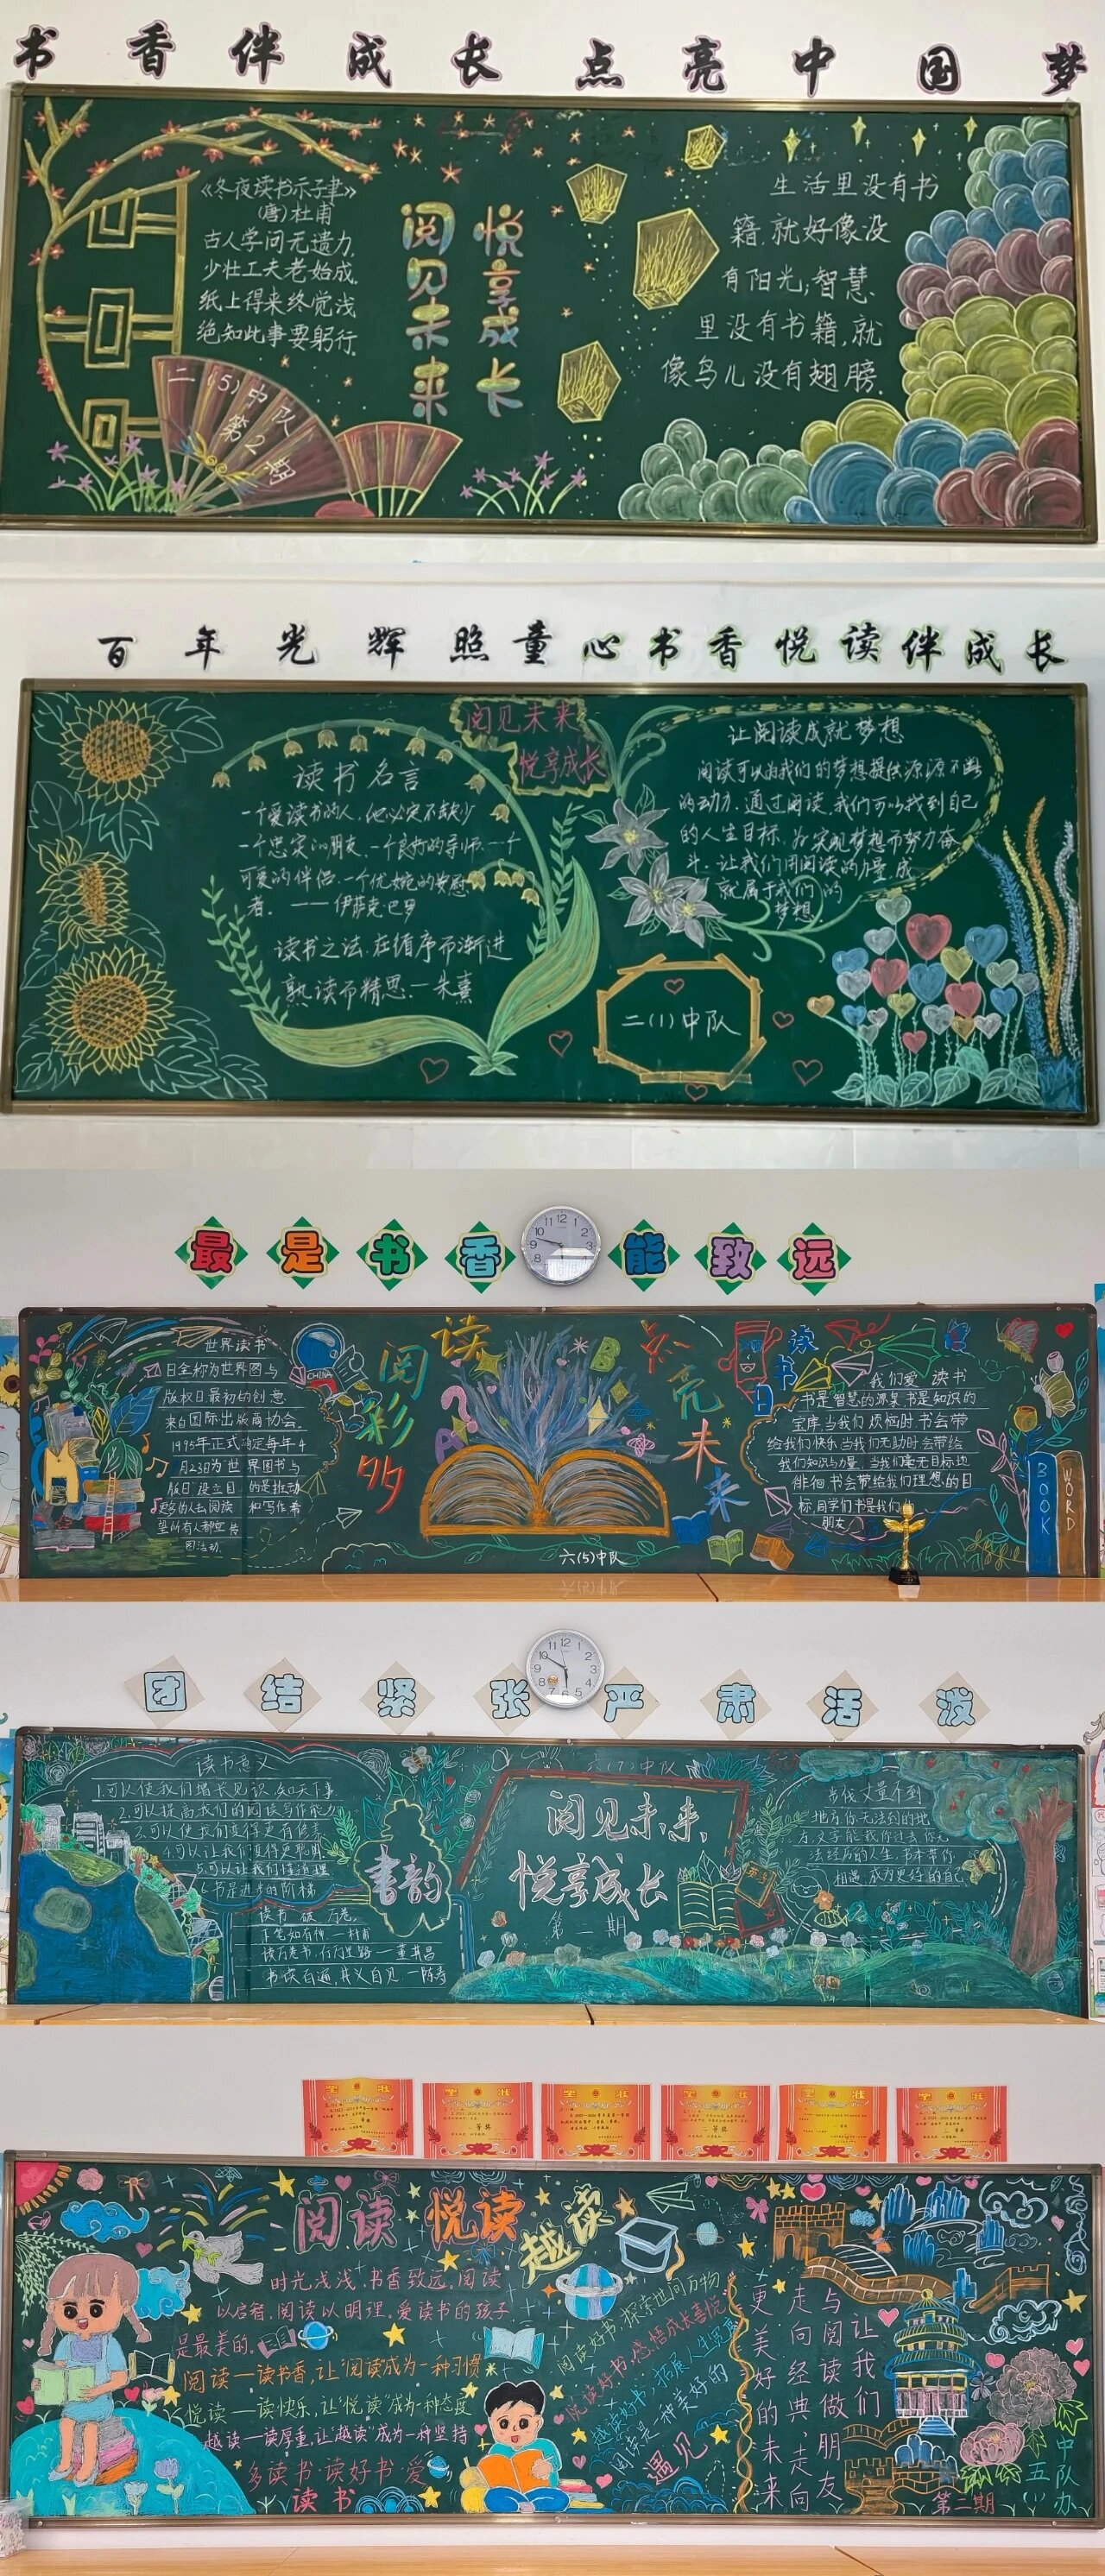 书香伴成长点亮中国梦
《冬夜读书示子聿》
(唐)杜甫
古人学问无遗力,
少壮工夫老始成.
纸上得来终觉浅
绝知此事要躬行.
二(5)中队
第2期
阅见未来
悦享成长
生活里没有书
籍,就好像没
有阳光;智慧
里没有书籍,就
像鸟儿没有翅膀.
百年光辉照童心书香悦读伴成长
阅见未来
悦享成长
读书名言
一个爱读书的人,他必定不缺少
一个忠实的朋友,一个良好的导师,一个
可爱的伴侣,一个优婉的安慰
者. ——伊萨克·巴罗
读书之法,在循序而渐进
熟读而精思.—朱熹
让阅读成就梦想
阅读可以为我们的梦想提供源源不断
的动力.通过阅读,我们可以找到自己
的人生目标,为实现梦想而努力奋
斗.让我们用阅读的力量,成
就属于我们的
梦想
二(1)中队
最是书香能致远
世界读书
日全称为世界图与
版权日最初的创意
来自国际出版商协会.
1995年正式确定每年4
月23日为世界图书与
版日,设立目的是推动
更多的人去阅读和写作希
望所有人都
阅读点亮未来
CHINA
读书日
我们爱读书
书是智慧的源泉书是知识的
宝库,当我们烦恼时书会带
给我们快乐当我们无助时,会带给
我们知识与力量.当我们毫无目标地
徘徊书会带给我们理想的目
标,同学们书是我们的
朋友
BOOK
WORD
六(5)中队
团结紧张严肃活泼
读书意义
1.可以使我们增长见识,知天下事.
2.可以提高我们的阅读与作能力
3.可以使我们变得更有修养
4.可以让我们变得更聪明.
5.可以让我们懂道理
6.书是进步的阶梯
书韵
读书破万卷,
下笔如有神.—杜甫
读万卷书,行万里路—董其昌
书读百遍,其义自见—陈寿
六(7)中队
阅见未来,
悦享成长
第二期
当代丈量不到
地方,你无法到的地
方,文字能载你过去,你无
法经历的人生,书本带你
相遇,成为更好的自己
阅读 悦读 越读
时光浅浅,书香致远,阅读
以启智,阅读以明理.爱读书的孩子
是最美的.
阅读一读书香,让"阅读"成为一种习惯
悦读一读快乐,让"悦读"成为一种态度
越读一读厚重,让"越读"成为一种坚持
多读书·读好书·爱
读书
阅读好书,探索世间万物
悦读好书,感悟成长喜悦
越读好书,拓展人生宽度
阅读是一种美好的
遇见
让我们
与阅读做朋友
走向经典、走向
更美好的未来
五(1)中队办
第二期